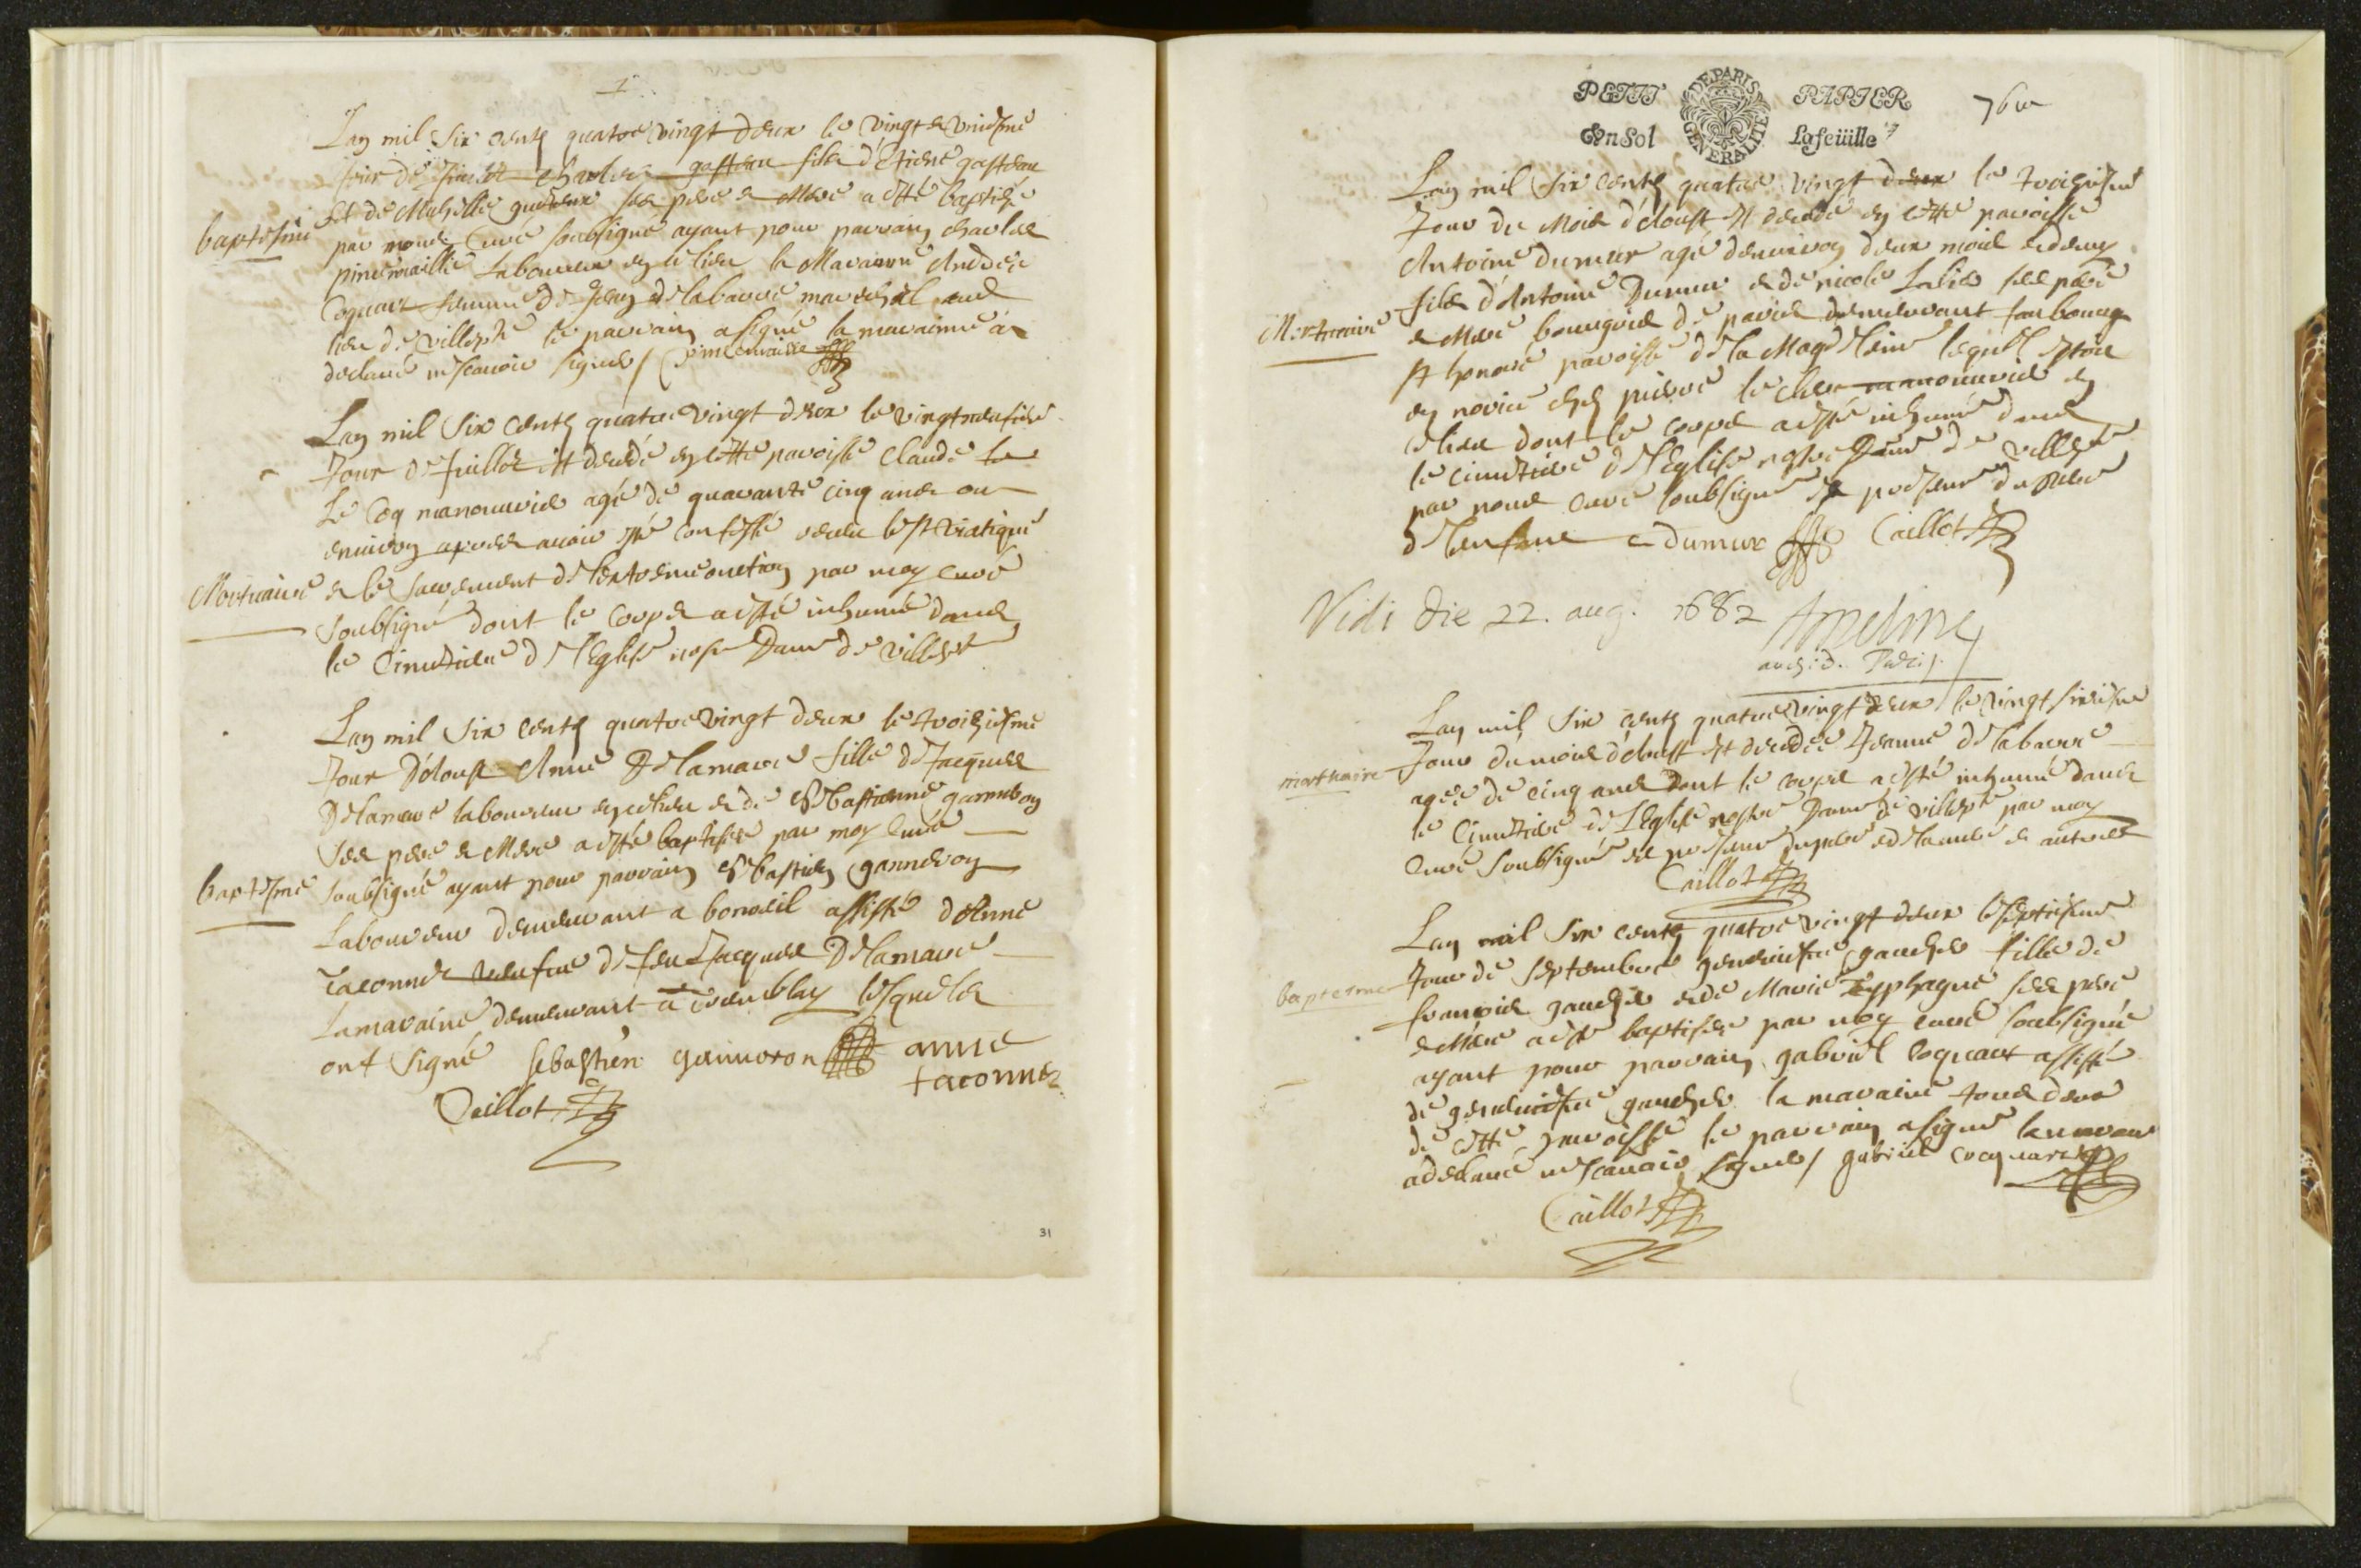 Lan mil Six cents quatre vingt deux le vingt et uniesme
jour de Juillet Charles gasteau fils d'Etiene gasteau
baptesme
Et de Michelle ses pere et Mere a esté baptisé
par nous Curé soubsigné ayant pour parrain charles
pincemaille Laboureur en ce lieu la Maraine Andrée
Coquart femme de Jean delabarre mareschal aud
lieu de villepte le parrain a signé la maraine a
declaré ne scavoir signer / Pincemaille
Lan mil Six cents quatre vingt deux le vingtneufie
Jour de Juillet est decedé en cette paroisse Claude Le
Le Coq manouvrier agé de quarante cinq ans ou
environ apres avoir esté confessé receu le st viatique
Mortuaire
et le sacrement de lextremeonction par moy curé
soubsigné dont le corps a esté inhumé dans
le Cimetiere de l'Eglise nostre Dame de villepte
Lan mil Six cents quatre vingt deux le troisiesme
Jour D'aoust Anne Delamare fille de Jacques
Delamare laboureur en ce lieu et de Sebastienne ganneron
Ses pere et Mere a esté baptisée par moy Curé
baptesme
soubsigné ayant pour parrain Sebastien ganneron
Laboureur demeurant a bonoeil assisté d'Anne
Taconnet veufue de feu Jacques Delamare
La maraine demeurant a tremblay lesquels
ont signé sebastien ganneron anne
taconnet
Caillot
31
PETIT PAPIER
GENERALITE DE PARIS
En Sol La feüille
Lan mil Six cents quatre vingt deux le troisiesme
Jour du Mois d'Aoust est decedé en cette paroisse
Antoine dumur agé denviron deux mois et demy
fils d'Antoine Dumur et de nicole ses pere
Mortuaire
et Mere bourgeois de paris demeurant faubourg
st honoré paroisse de la Magdeleine lequel estoit
en norice chez pierre le manouvrier en
ce lieu dont le corps a esté inhumé dans
le cimetiere de l'Eglise nostre Dame de villepte
par nous curé soubsigné en presence du pere
de lenfant dumur Caillot
Vidi die 22. aug. 1682 Ameline
archid. Paris.
Lan mil Six cents quatre vingt deux le vingt sixiesme
Jour du mois d'aoust est decedée Jeanne de labarre
mortuaire
agée de cinq ans Dont le corps a esté inhumé dans
le Cimetiere de L'Eglise nostre Dame de villepte par moy
Curé soubsigné en presence du pere et de la mere et autres
Caillot
Lan mil Six cents quatre vingt deux le septiesme
Jour de septembre genevieufve gaucher fille de
baptesme
francois gaucher et de Marie Typhagne ses pere
et Mere a esté baptisée par moy curé soubsigné
ayant pour parrain gabriel Coquart assisté
de genevieufve gaucher la maraine tous deux
de cette paroisse le parrain a signé la maraine
a declaré ne scavoir signer / gabriel cocquart
Caillot